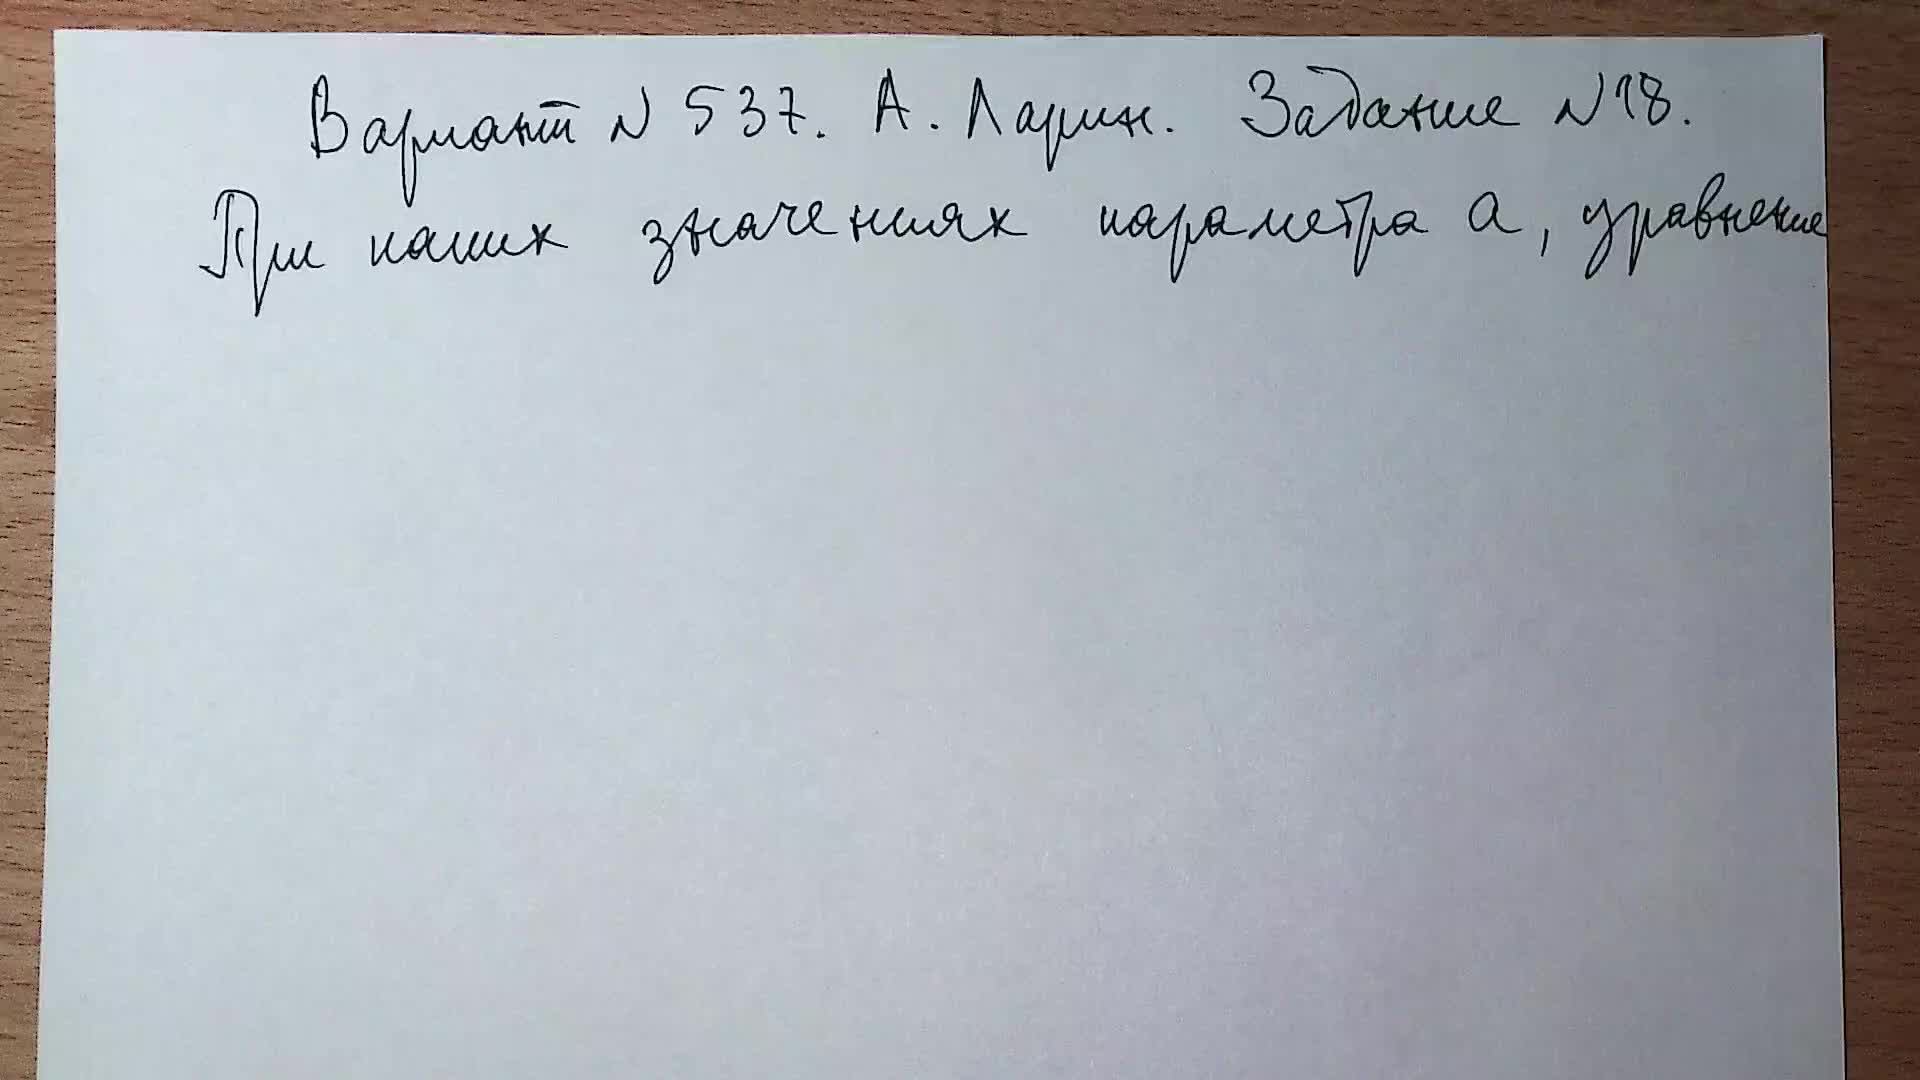 Вариант N 537. А. Ларин. Задание N18.
При каких значениях параметра а, уравнение